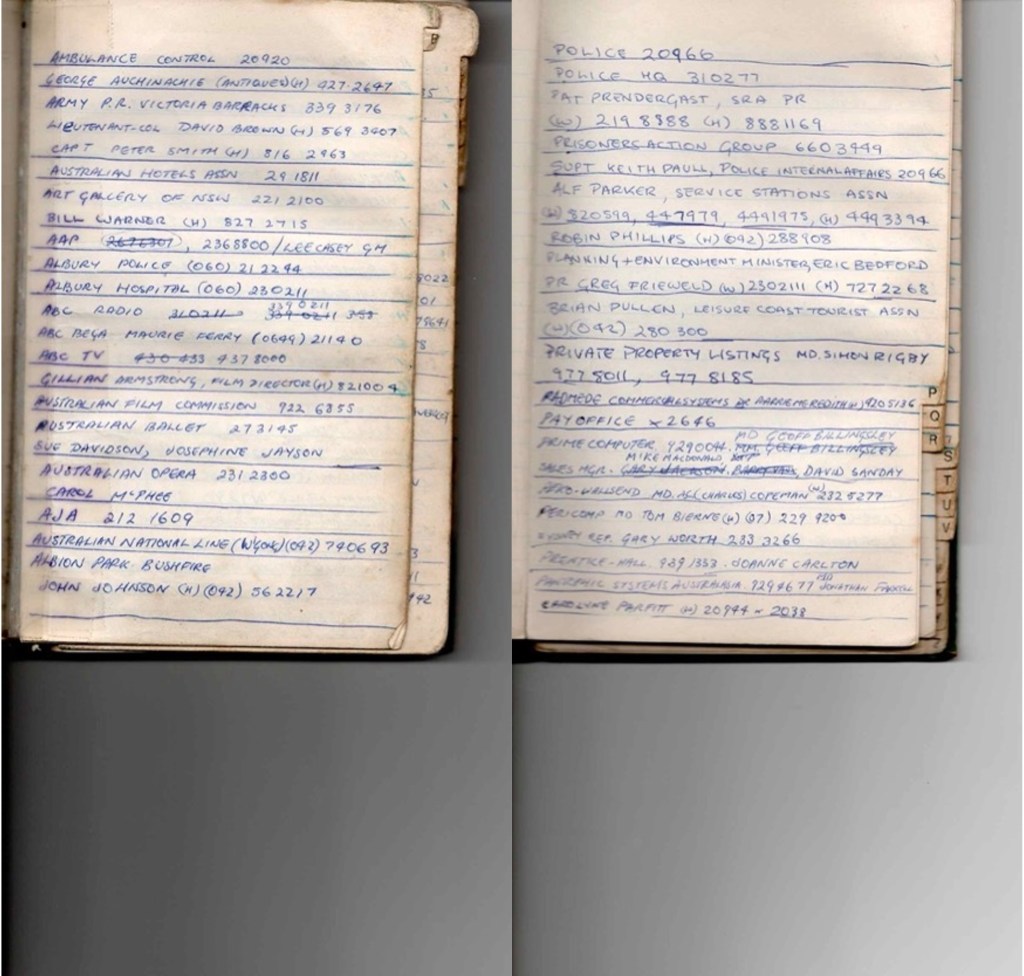 AMBULANCE CONTROL 20920
GEORGE AUCHINACHIE (ANTIQUES)(H) 427-2647
ARMY P.R. VICTORIA BARRACKS 339 3176
LIEUTENANT-COL DAVID BROWN (H) 569 3407
CAPT PETER SMITH (H) 816 2963
AUSTRALIAN HOTELS ASSN 29 1811
ART GALLERY OF NSW 221 2100
BILL WARNER (H) 827 2715
AAP 2368800/LEE CASEY GM
ALBURY POLICE (060) 21 2244
ALBURY HOSPITAL (060) 230211
339 0211
ABC RADIO 310211 339 0211
ABC BEGA MAURIE FERRY (0649) 21140
ABC TV 430 433 437 8000
GILLIAN ARMSTRONG, FILM DIRECTOR (H) 821004
AUSTRALIAN FILM COMMISSION 922 6855
AUSTRALIAN BALLET 273145
SUE DAVIDSON, JOSEPHINE JAYSON
AUSTRALIAN OPERA 231 2300
CAROL McPHEE
AJA 212 1609
AUSTRALIAN NATIONAL LINE (042) 740693
ALBION PARK BUSHFIRE
JOHN JOHNSON (H) (042) 562217
B
POLICE 20966
POLICE HQ 310277
PAT PRENDERGAST, SRA PR
(W) 219 8888 (H) 8881169
PRISONERS ACTION GROUP 660 3449
SUPT KEITH PAULL, POLICE INTERNAL AFFAIRS 20966
ALF PARKER, SERVICE STATIONS ASSN
820599, 447979, 4491975, (H) 4493394
ROBIN PHILLIPS (H) (042) 288908
PLANNING + ENVIRONMENT MINISTER, ERIC BEDFORD
PR GREG FRIEWELD (W) 2302111 (H) 727 2268
BRIAN PULLEN, LEISURE COAST TOURIST ASSN
(W) (042) 280 300
PRIVATE PROPERTY LISTINGS MD. SIMON RIGBY
977 8011, 977 8185
PAY OFFICE x 2646
MD GEOFF BILLINGSLEY
PRIME COMPUTER 9290044. GEOFF BILLINGSLEY
MIKE MACDONALD
SALES MGR. GARY JACKSON. DAVID SANDAY
COPEMAN (W) 232 5277
PERICOMP MD TOM BIERNE (W) (07) 229 9200
SYDNEY REP. GARY WORTH 233 3266
PRENTICE-HALL 939 1333. JOANNE CARLTON
SYSTEMS AUSTRALASIA. 9294677 JONATHAN
CAROLYNE PARFITT (W) 20944 x 2038
P
Q
R
S
T
U
V